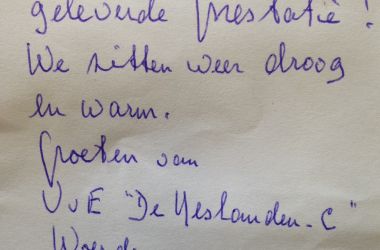 geleverde prestatie!
We zitten weer droog
en warm.
Groeten van
VvE "De Neslanden-C"